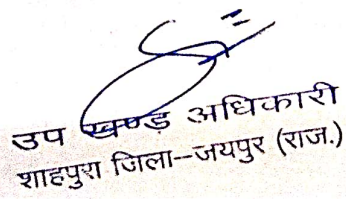 उप खण्ड अधिकारी
शाहपुरा जिला–जयपुर (राज.)